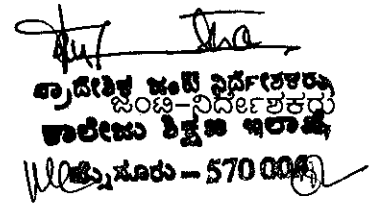 ಪ್ರಾದೇಶಿಕ ಜಂಟಿ ನಿರ್ದೇಶಕರು
ಜಂಟಿ-ನಿರ್ದೇಶಕರು
ಕಾಲೇಜು ಶಿಕ್ಷಣ ಇಲಾಖೆ
ಮೈಸೂರು – 570 004